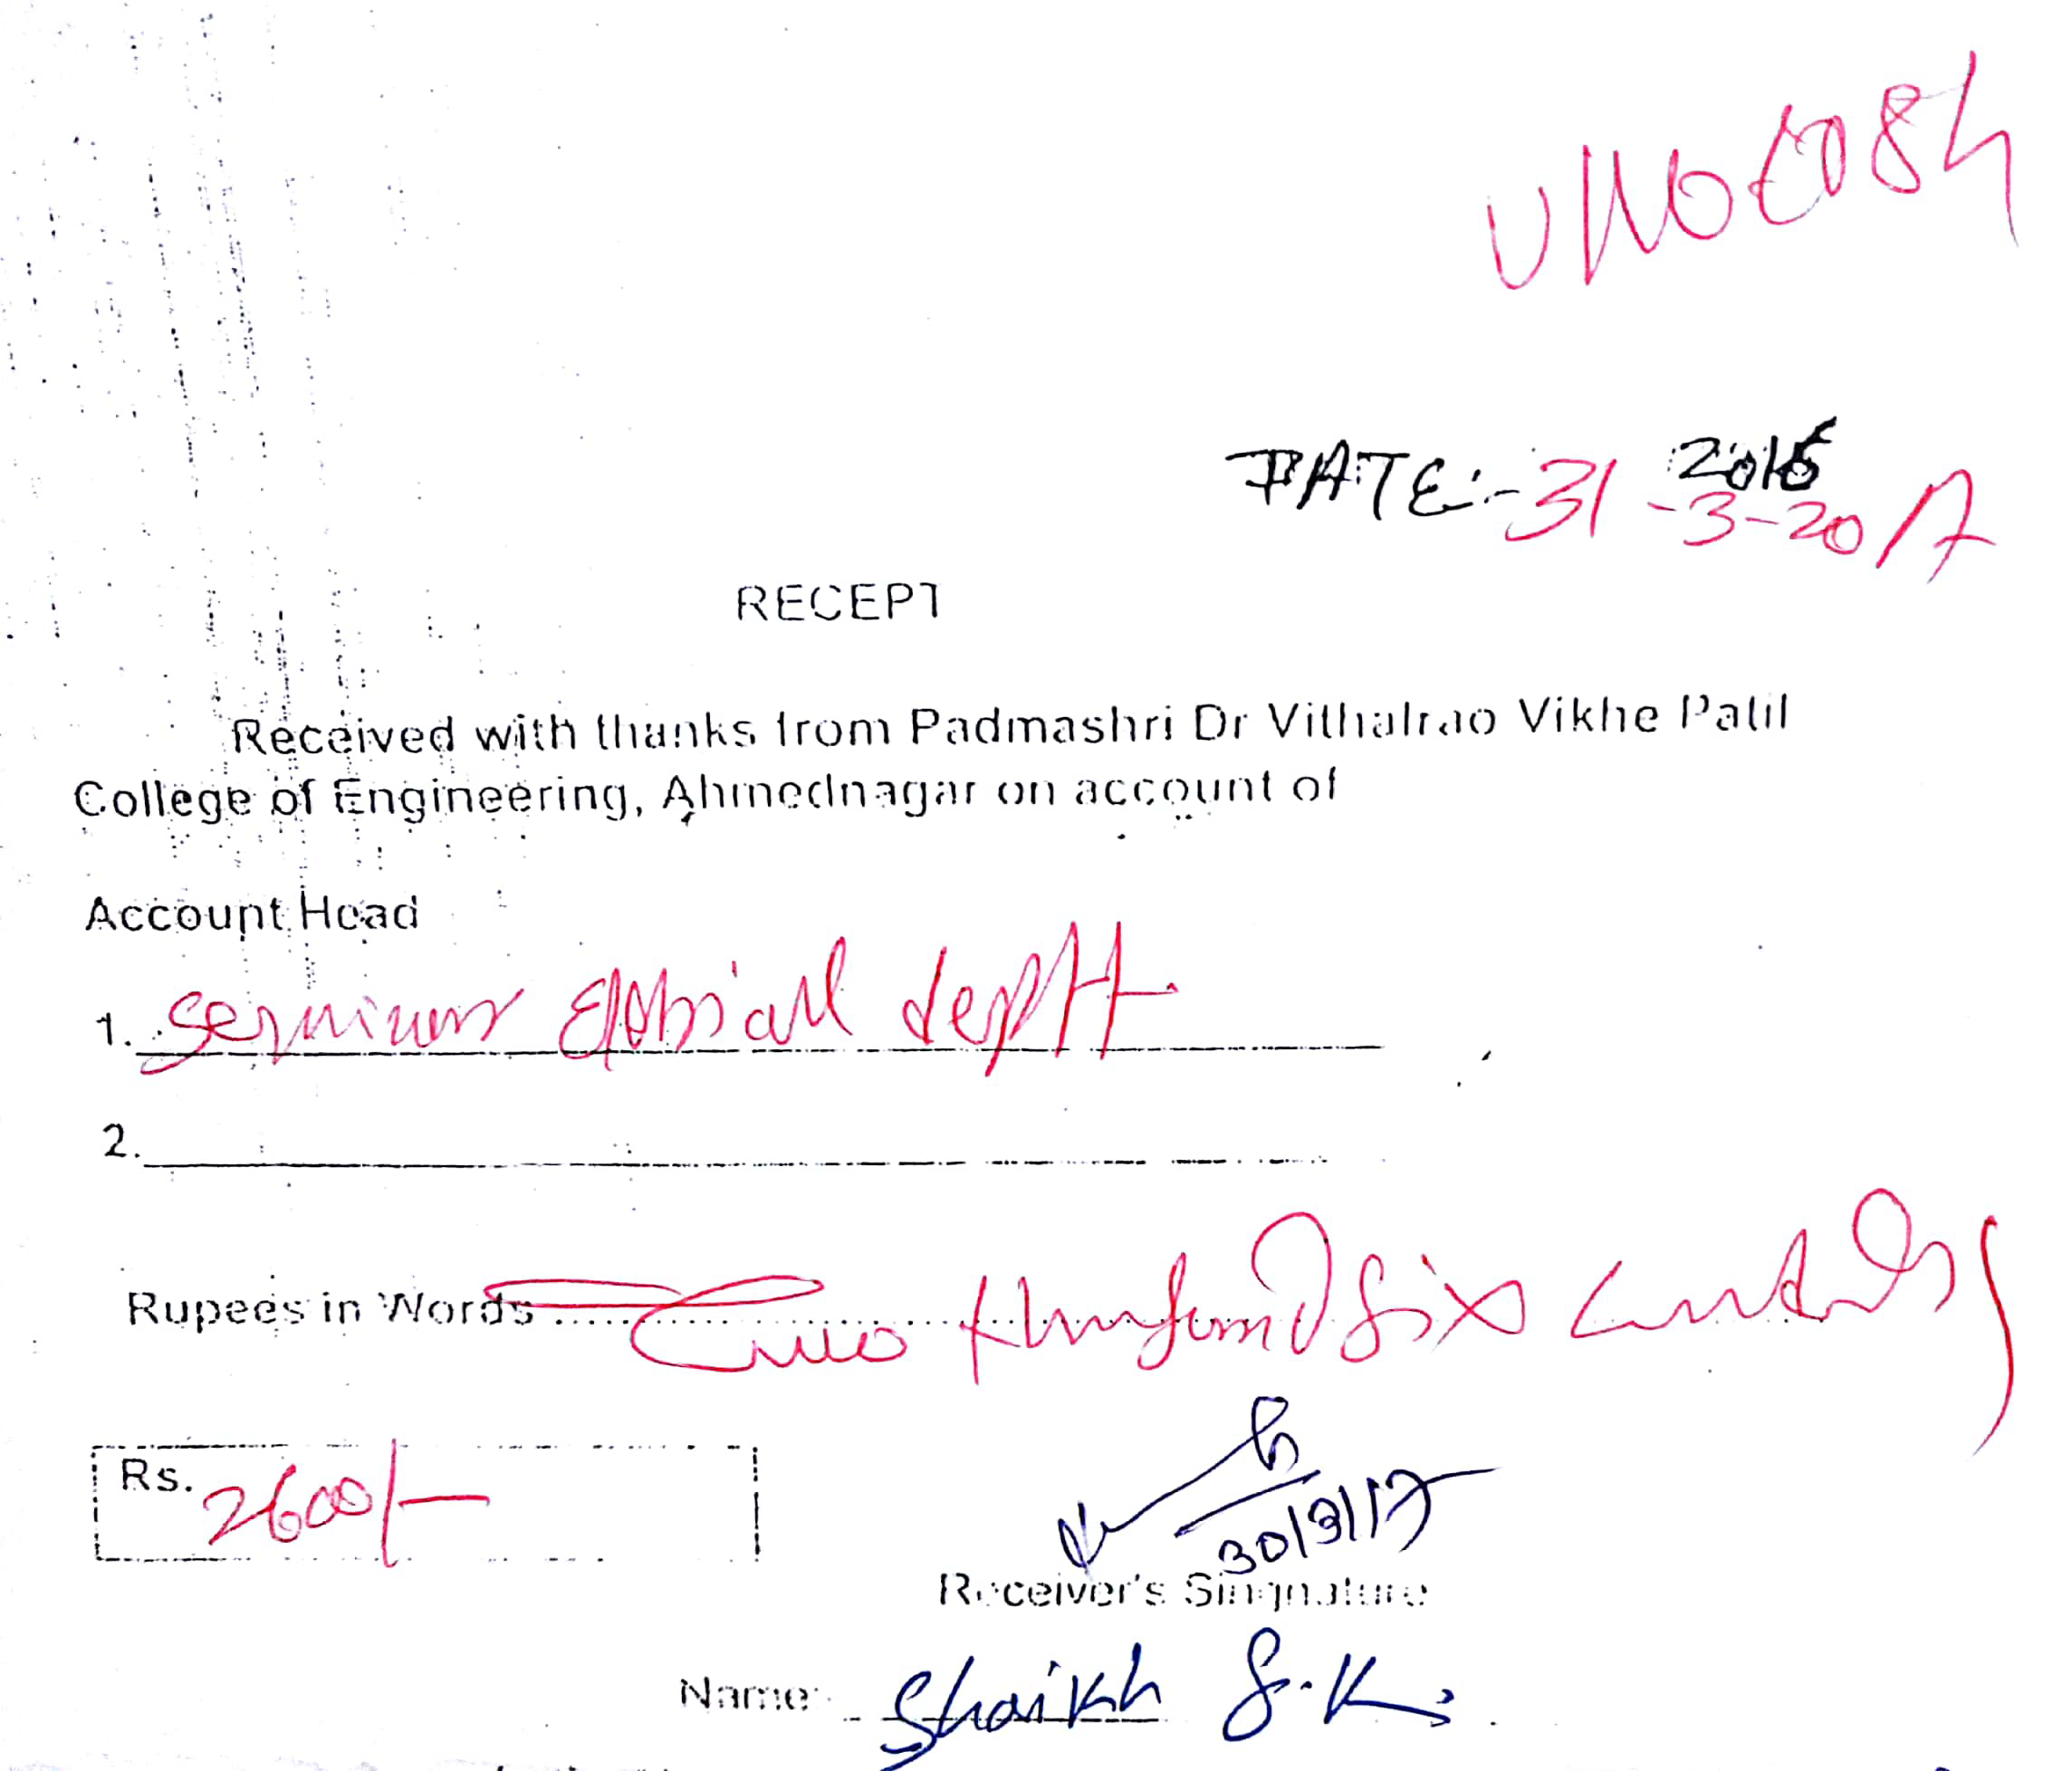 DATE:- 31-3-2017
RECEPT
Received with thanks from Padmashri Dr Vithalrao Vikhe Patil
College of Engineering, Ahmednagar on account of
Account Head
1. deptt
2.
Rupees in Words Two six
Rs. 2600/-
30/3/17
Receiver's Singnature
Name: Shaikh S.K.